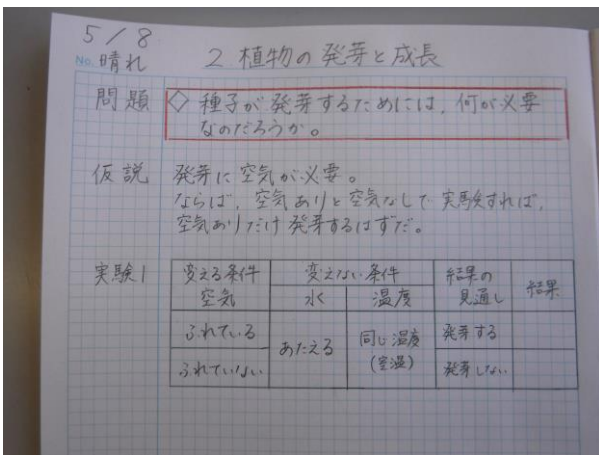 5/8
No. 晴れ
2 植物の発芽と成長
問題 ◇ 種子が発芽するためには、何が必要
なのだろうか。
仮説 発芽に空気が必要。
ならば、空気ありと空気なしで実験すれば、
空気ありだけ発芽するはずだ。
実験1 変える条件 変えない条件 結果の 結果
空気 水 温度 見通し
ふれている あたえる 同じ温度 発芽する
ふれていない (室温) 発芽しない